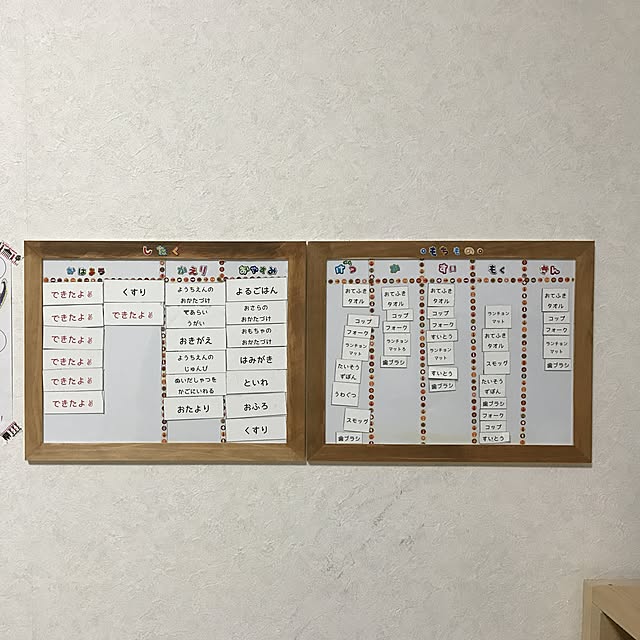 したく
おはよう
かえり
おやすみ
できたよ
できたよ
できたよ
できたよ
できたよ
できたよ
くすり
できたよ
ようちえんの
おかたづけ
てあらい
うがい
おきがえ
ようちえんの
じゅんび
ぬいだしゃつを
かごにいれる
おたより
よるごはん
おさらの
おかたづけ
おもちゃの
おかたづけ
はみがき
といれ
おふろ
くすり
もちもの
げつ
か
すい
もく
きん
おてふき
タオル
コップ
フォーク
ランチョン
マット
たいそう
ずぼん
うわぐつ
スモッグ
歯ブラシ
おてふき
タオル
コップ
フォーク
ランチョン
マット
歯ブラシ
おてふき
タオル
コップ
フォーク
すいとう
ランチョン
マット
すいとう
歯ブラシ
ランチョン
マット
おてふき
タオル
スモッグ
たいそう
ずぼん
歯ブラシ
フォーク
コップ
すいとう
おてふき
タオル
コップ
フォーク
ランチョン
マット
歯ブラシ